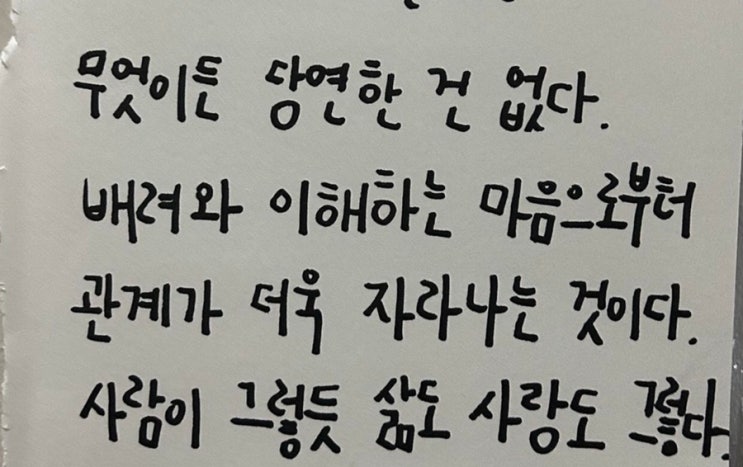 무엇이든 당연한 건 없다.
배려와 이해하는 마음으로부터
관계가 더욱 자라나는 것이다.
사람이 그렇듯 삶도 사랑도 그렇다.